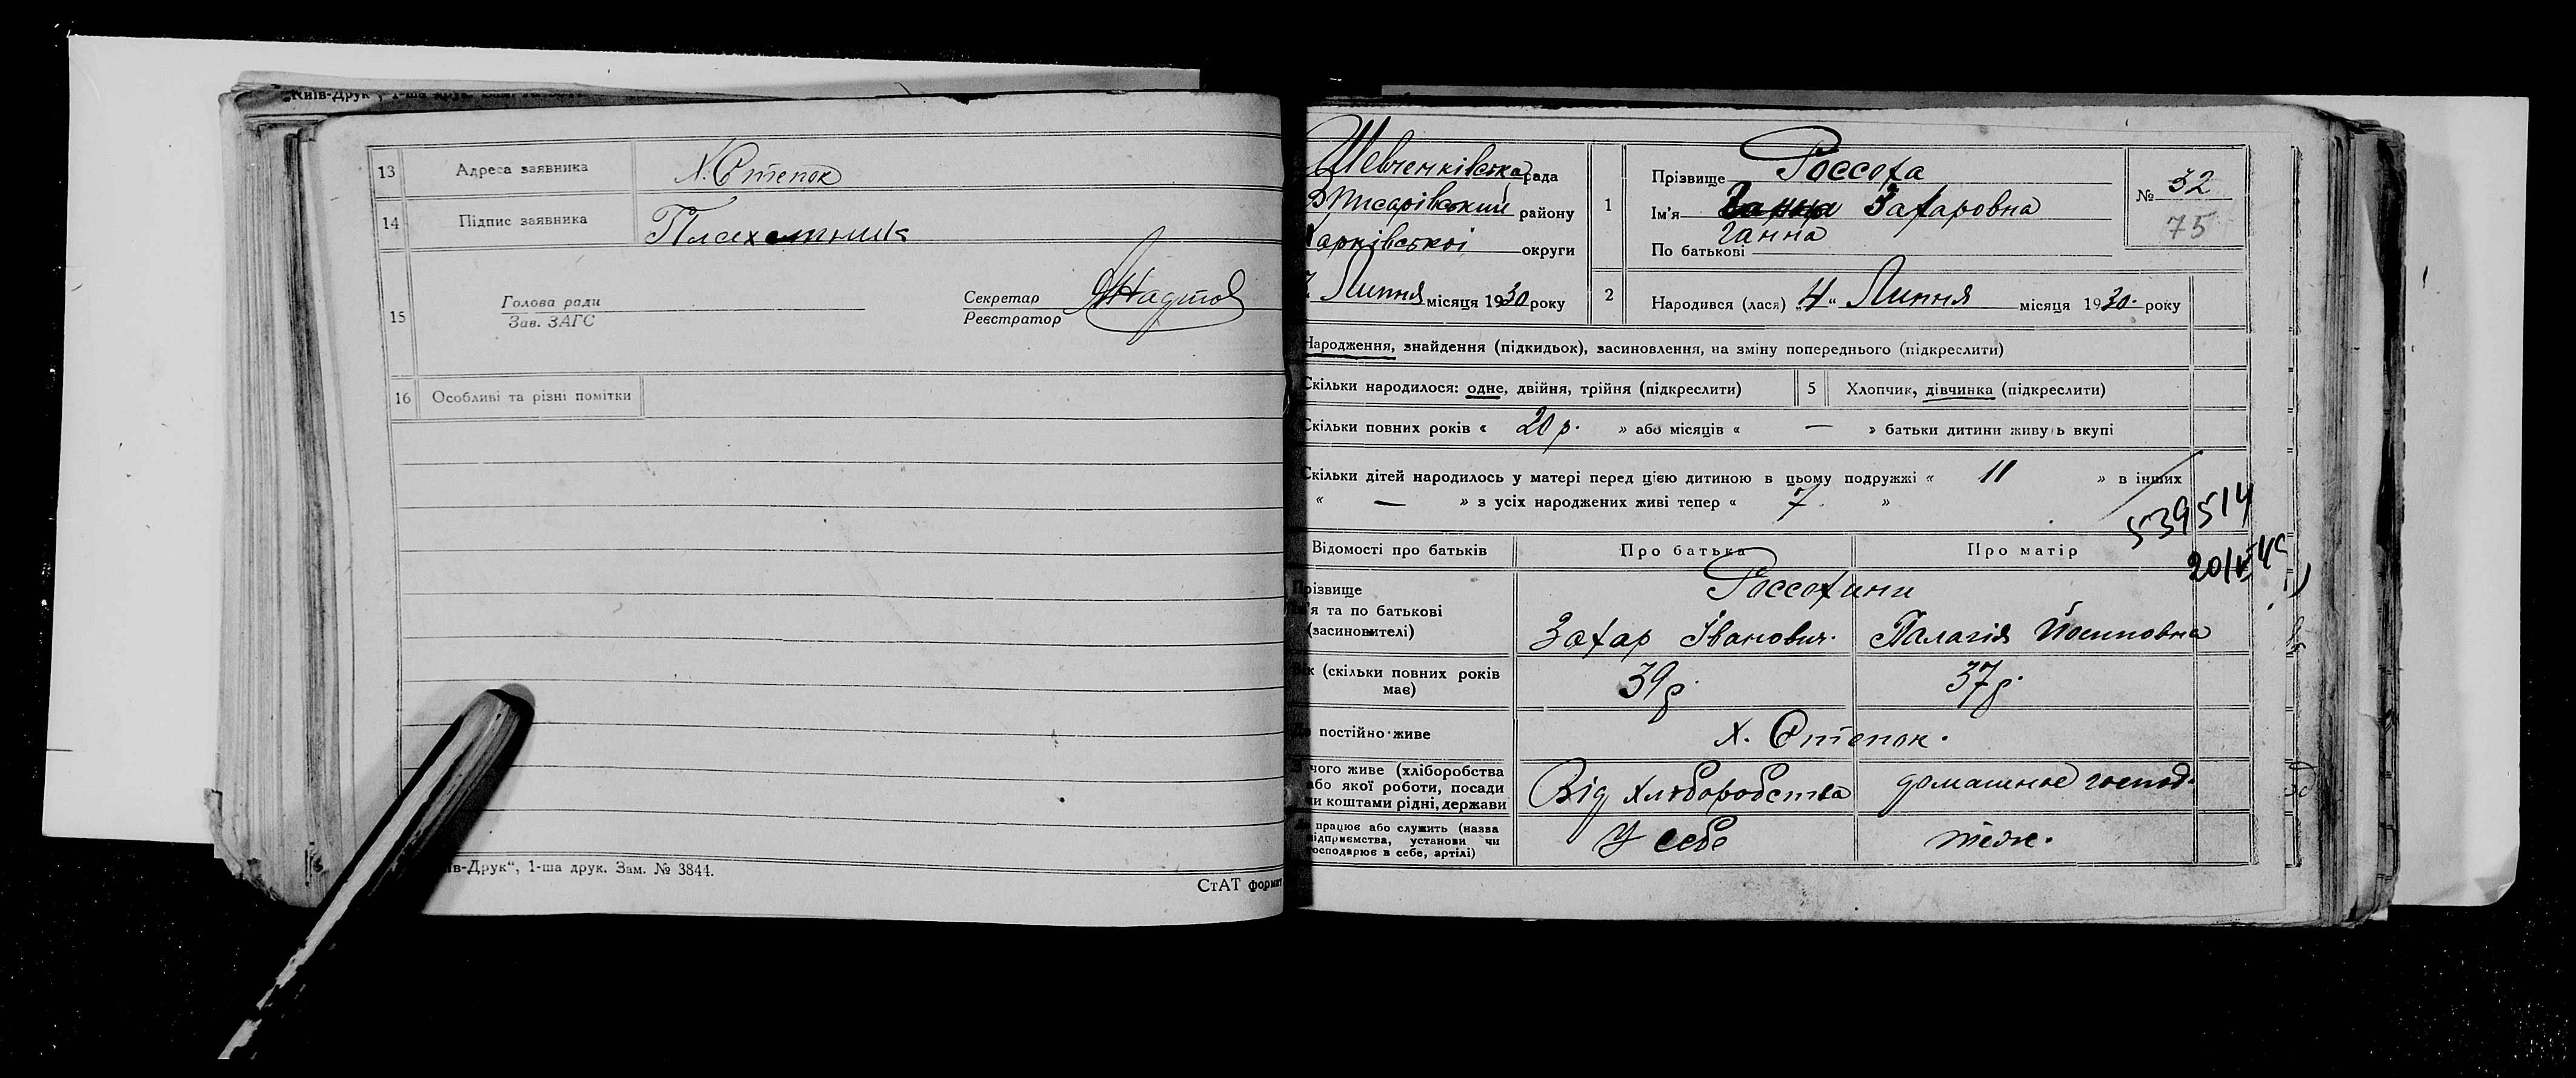 13 Адреса заявника Х. Степок
14 Підпис заявника
15 Голова ради
Зав. ЗАГС
Секретар
Реєстратор
16 Особливі та різні помітки
в-Друк“, 1-ша друк. Зам. № 3844.
СтАТ формат
Шевченківська рада
В Писарівський району
Харківської округи
Липня місяця 1930 року
1 Прізвище Россоха
Ім'я Захаровна
Ганна
По батькові
№ 32
75
2 Народився (лася) „4“ Липня місяця 1930. року
Народження, знайдення (підкидьок), засиновлення, на зміну попереднього (підкреслити)
Скільки народилося: одне, двійня, трійня (підкреслити) 5 Хлопчик, дівчинка (підкреслити)
Скільки повних років « 20 р. » або місяців « — » батьки дитини живуть вкупі
Скільки дітей народилось у матері перед цією дитиною в цьому подружжі « 11 » в інших
« — » з усіх народжених живі тепер « 7 »
539514
Відомості про батьків Про батька Про матір
Прізвище Россохини
м'я та по батькові
(засиновителі) Захар Іванович. Палагія Йосиповна
Вік (скільки повних років
має) 39 р. 37 р.
постійно живе Х. Степок.
чого живе (хліборобства
або якої роботи, посади
чи коштами рідні, держави Від хлібородства домашнє господ.
працює або служить (назва
підприємства, установи чи
господарює в себе, артілі) У себе теж.